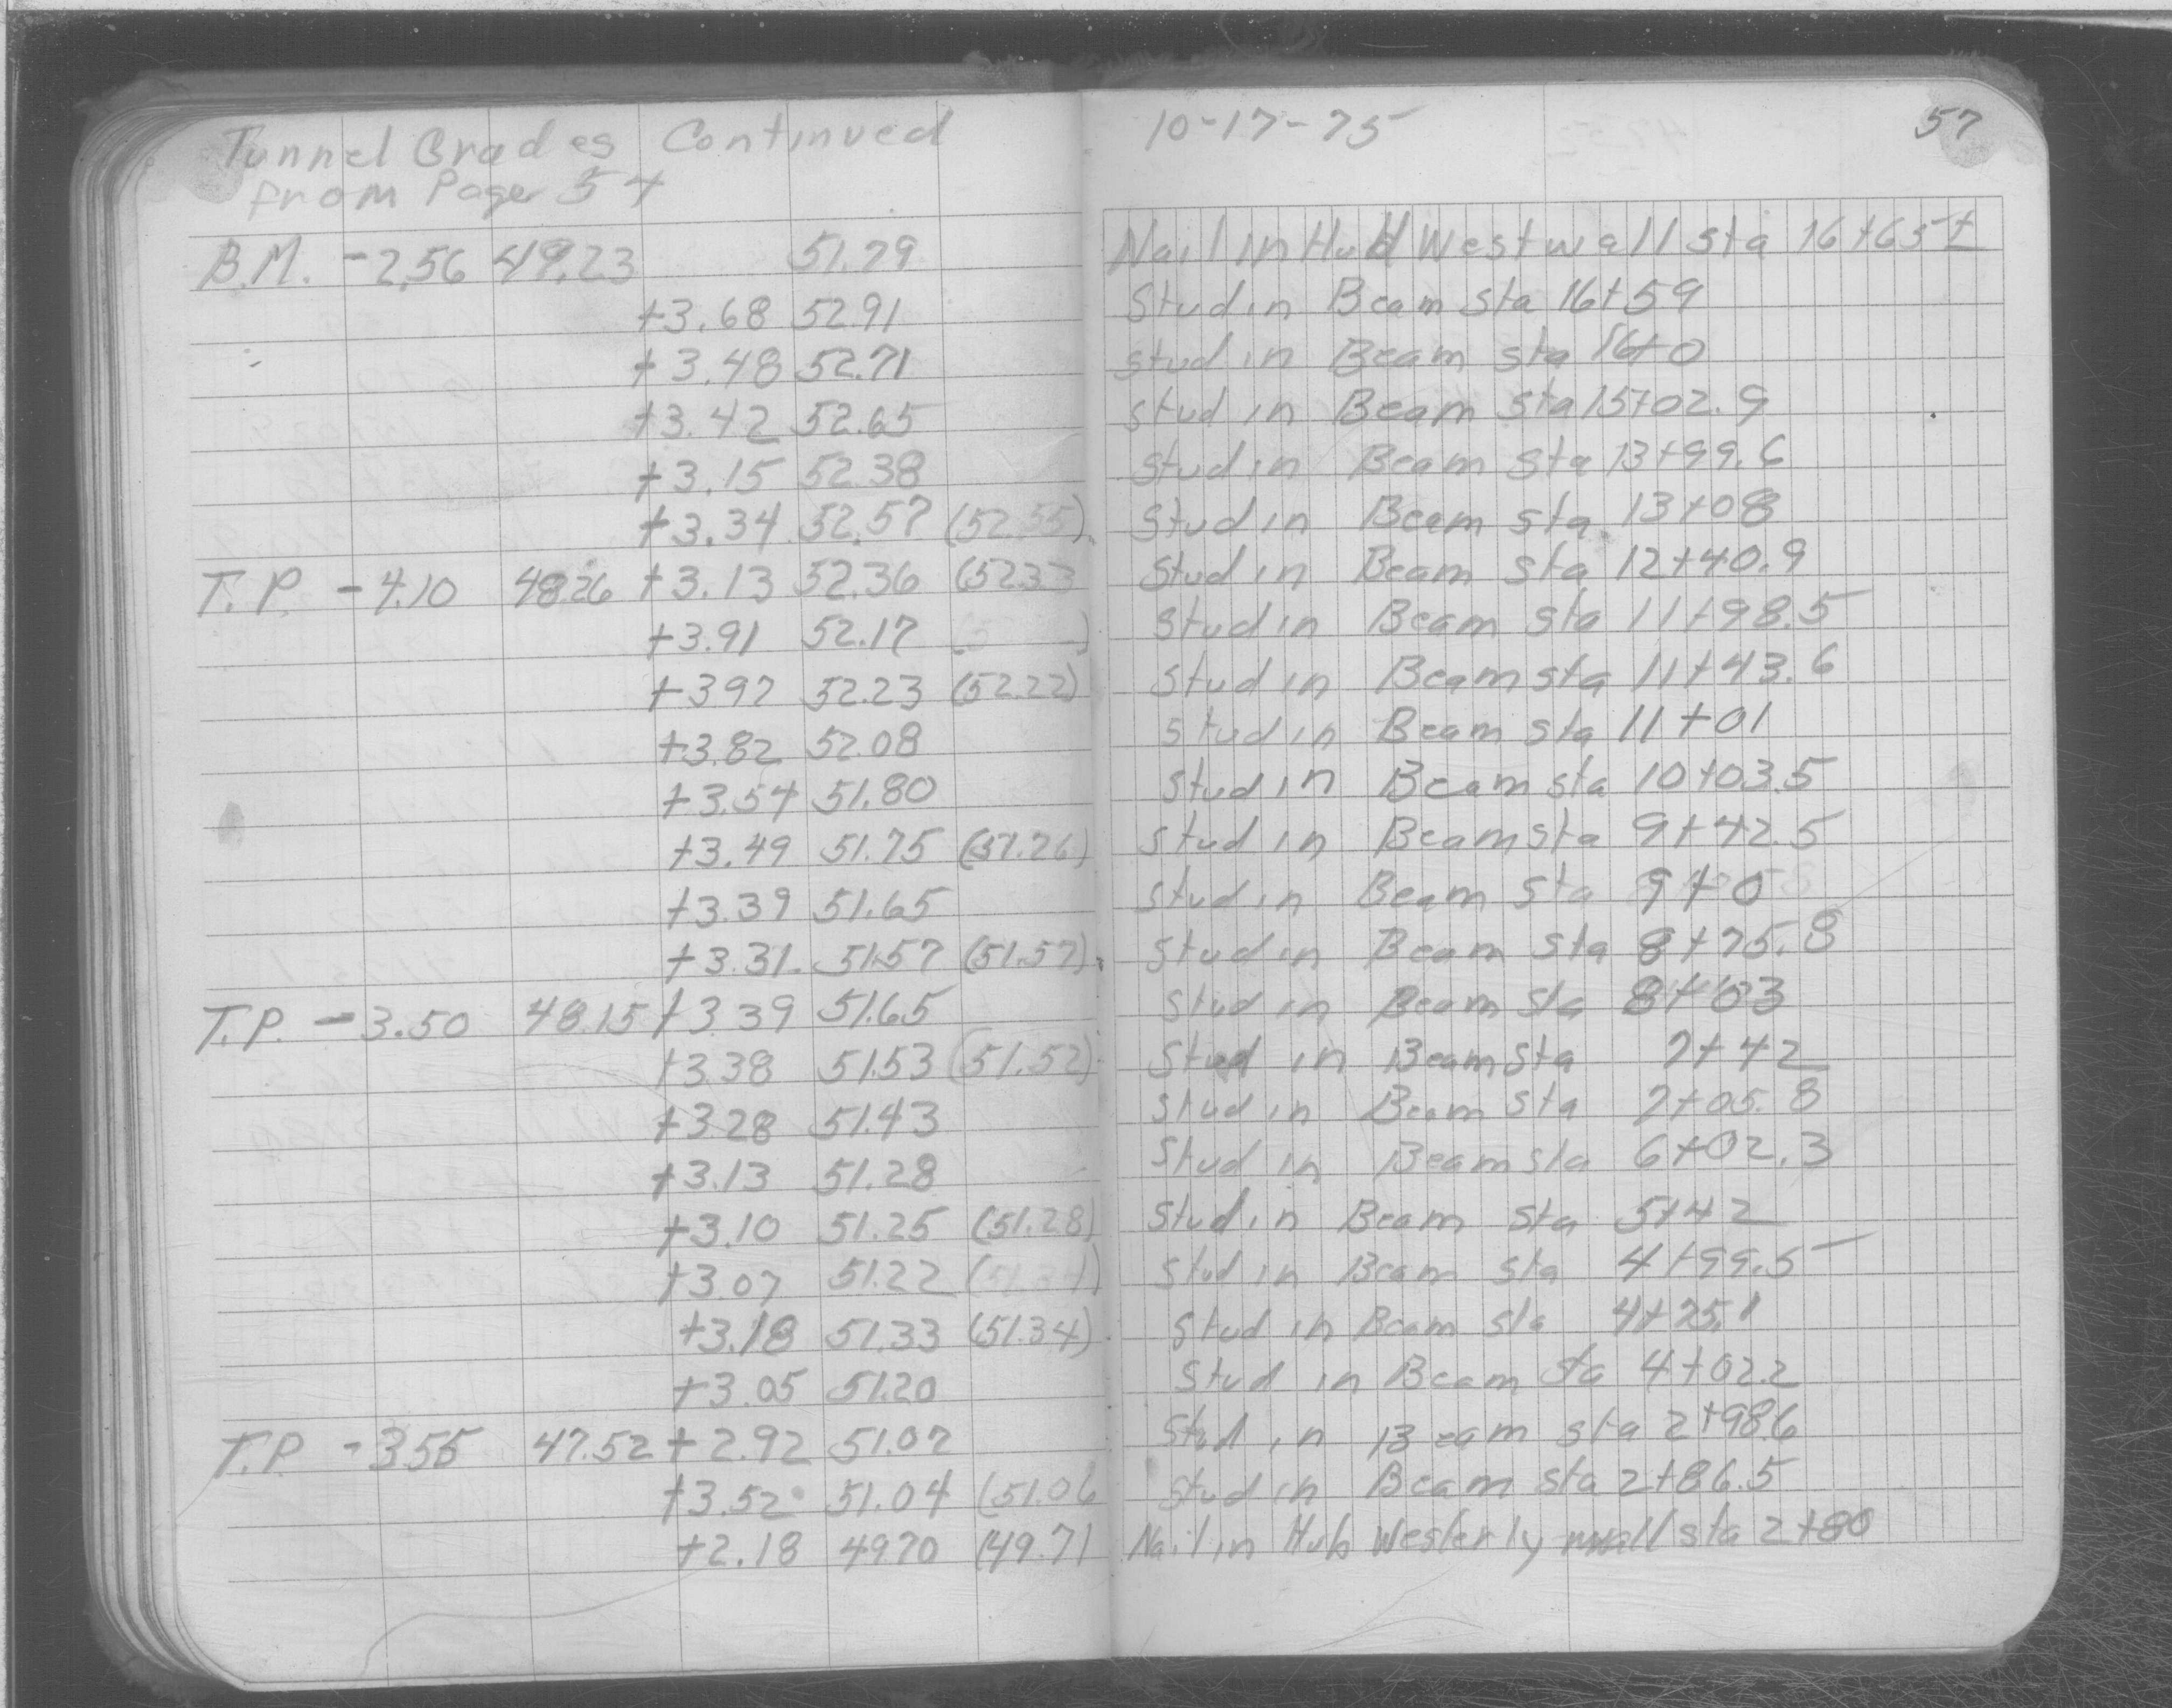 Tunnel Grades Continued 10-17-75 57
from Page 54
B.M. -2.56 49.23 51.79 Nail in Hub West wall sta 16+65±
+3.68 52.91 Stud in Beam sta 16+59
+3.48 52.71 Stud in Beam sta 16+0
+3.42 52.65 Stud in Beam sta 15+02.9
+3.15 52.38 Stud in Beam sta 13+99.6
+3.34 52.57 (52.55) Stud in Beam sta 13+08
T.P. -4.10 48.26 +3.13 52.36 (52.33 Stud in Beam sta 12+40.9
+3.91 52.17 Stud in Beam sta 11+98.5
+397 52.23 (52.22) Stud in Beam sta 11+43.6
+3.82 52.08 Stud in Beam sta 11+01
+3.54 51.80 Stud in Beam sta 10+03.5
+3.49 51.75 (51.76) Stud in Beam sta 9+42.5
+3.39 51.65 Stud in Beam sta 9+0
+3.31 51.57 (51.57) Stud in Beam sta 8+75.8
T.P. -3.50 48.15 +3.39 51.65 Stud in Beam sta 8+03
+3.38 51.53 (51.52) Stud in Beam sta 7+42
+3.28 51.43 Stud in Beam sta 7+05.8
+3.13 51.28 Stud in Beam sta 6+02.3
+3.10 51.25 (51.28) Stud in Beam sta 5+42
+3.07 51.22 Stud in Beam sta 4+99.5
+3.18 51.33 (51.34) Stud in Beam sta 4+25.1
+3.05 51.20 Stud in Beam sta 4+02.2
T.P. -3.55 47.52 +2.92 51.07 Stud in Beam sta 2+98.6
+3.52 51.04 (51.06 Stud in Beam sta 2+86.5
+2.18 49.70 (49.71 Nail in Hub Westerly wall sta 2+80